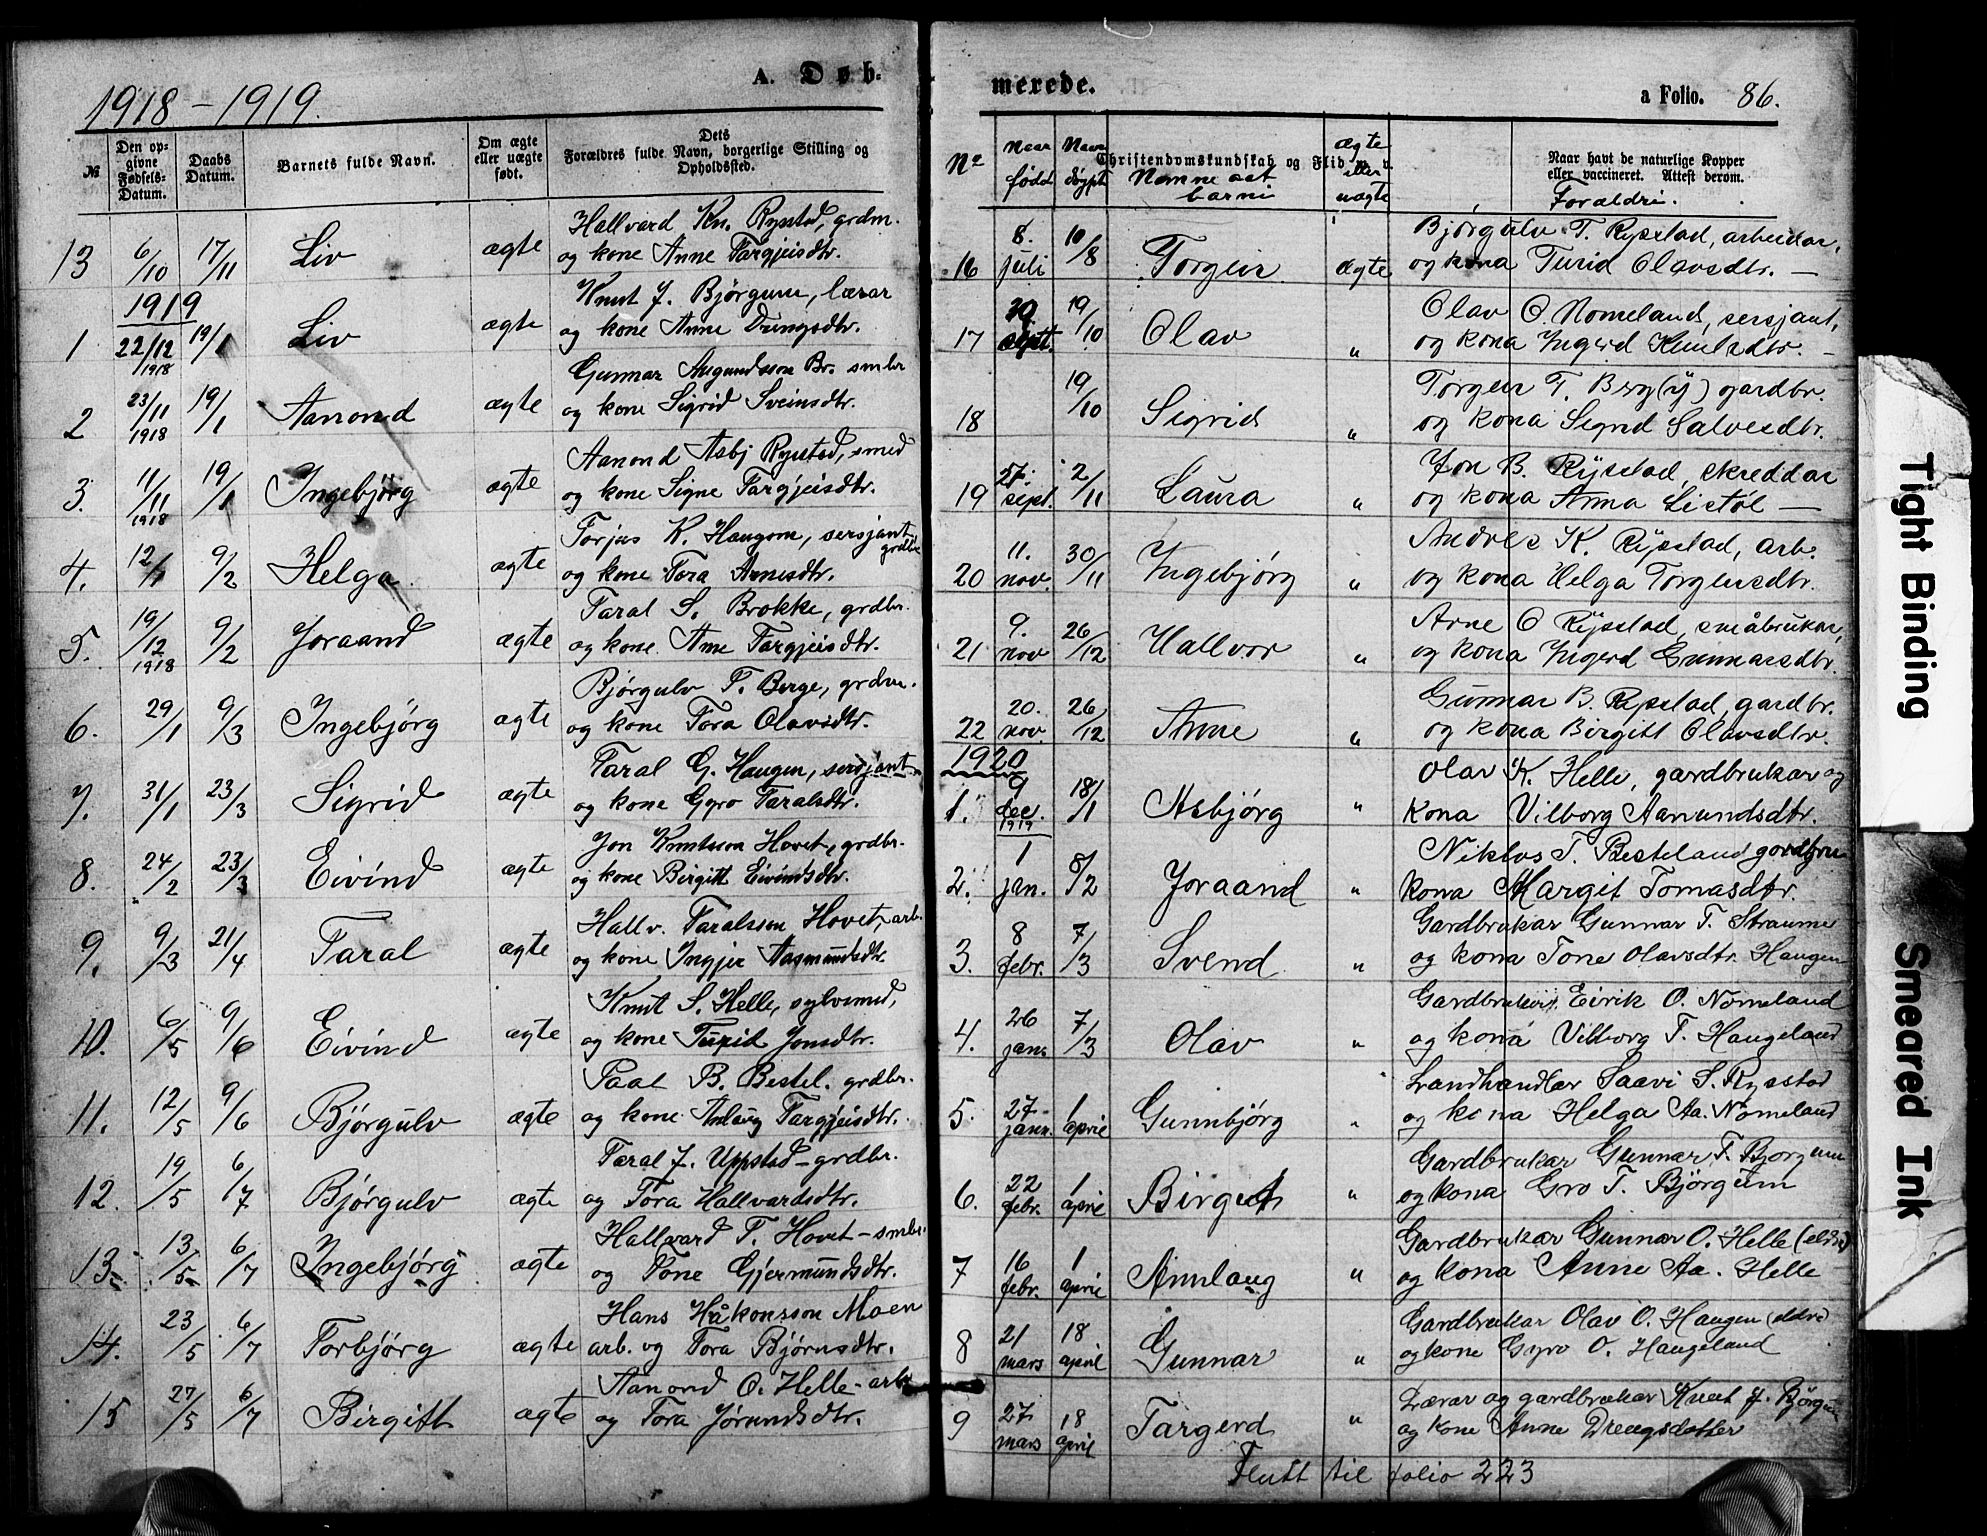 A. Døb-
1918-1919.
№
Den op-
givne
Fødsels-
Datum.
Daabs
Datum.
Barnets fulde Navn.
Om ægte
eller uægte
født.
Dets
Forældres fulde Navn, borgerlige Stilling og
Opholdssted.
13 6/10 17/11 Liv ægte Hallvard Kn. Rysstad, grdm.
og kone Anne Targjeisdtr.
1919
1 22/12 1918 19/1 Liv ægte Knut J. Bjørgum, lærar
og kone Anne Drengsdtr.
2 23/11 1918 19/1 Aanond ægte Gunnar Augundsson Br. smbr
og kone Sigrid Sveinsdtr.
3. 11/11 1918 19/1 Ingebjörg ægte Aanond Asbj Rysstad, smed
og kone Signe Targjeisdtr.
4. 12/1 9/2 Helga ægte Torjus K. Haugom, sersjant grdbr
og kone Tora Arnesdtr.
5. 19/12 1918 9/2 Joraand ægte Taral S. Brokke, grdbr.
og kone Anne Targjeisdtr.
6. 29/1 9/3 Ingebjørg ægte Bjørgulv T. Berge, grdbr.
og kone Tora Olavsdtr.
7. 31/1 23/3 Sigrid ægte Taral G. Haugen, sersjant
og kone Gyro Taralsdtr.
8. 24/2 23/3 Eivind ægte Jon Knutsson Hovet, grdbr.
og kone Birgitt Eivindsdtr.
9. 9/3 21/4 Taral ægte Hallv. Taralsson Hovet, arb.
og kone Ingjer Aasmundsdtr
10. 6/5 9/6 Eivind ægte Knut S. Helle, sylvsmed,
og kone Turid Jonsdtr.
11. 12/5 9/6 Bjørgulv ægte Paal B. Bestel. grdbr.
og kone Anlaug Targjeisdtr.
12. 19/5 6/7 Bjørgulv ægte Taral J. Uppstad - grdbr.
og Tora Hallvardsdtr.
13. 13/5 6/7 Ingebjørg ægte Hallvard T. Hovet - smbr.
og Tone Gjermundsdtr.
14. 23/5 6/7 Torbjørg ægte Hans Håkonsson Moen
arb. og Tora Bjørnsdtr.
15 27/5 6/7 Birgitt ægte Aanond O. Helle - arb
og Tora Jørundsdtr.
merede.
a Folio. 86.
Nr
Naar
född
Naar
døypt
Christendomskundskab og Flid
Namne aat
barni
ægte
eller
uægte
Naar havt de naturlige Kopper
eller vaccineret. Attest derom.
Foraeldri.
16 8. juli 10/8 Torgeir ægte Bjørgulv T. Rysstad, arbeidar,
og kona Turid Olavsdtr. —
17 sept. 19/10 Olav " Olav O. Nomeland, sersjant,
og kona Ingerd Knutsdtr. —
18 19/10 Sigrid " Torgeir T. Berg(y) gardbr.
og kona Sigrid Salvesdtr.
19 27. sept. 2/11 Laura " Jon B. Rysstad, skreddar
og kona Anna Listöl —
20 11. nov. 30/11 Ingebjørg " Andres K. Rysstad, arb.
og kona Helga Torgeirsdtr.
21 9. nov 26/12 Hallvor " Arne O Rysstad, småbrukar,
og kona Ingerd Gunnarsdtr.
22 20. nov. 26/12 Anne " Gunnar B. Rysstad, gardbr.
og kona Birgitt Olavsdtr.
1920
1. 9 dec. 1919 18/1 Asbjørg " Olav K. Helle, gardbrukar og
kona Vilborg Aanundsdtr.
2. 1 jan. 8/2 Joraand " Niklos T. Besteland gardbru
kona Margit Tomasdtr.
3. 8 febr. 7/3 Svend " Gardbrukar Gunnar T. Straume
og kona Tone Olavsdtr. Haugen
4. 26 jan. 7/3 Olav " Gardbrukar Eirik O. Nomeland
og kona Vilborg T. Haugeland
5. 27 jann. 1 april Gunnbjörg " Landhandlar Saavi S. Rysstad
og kona Helga Aa. Nomeland
6. 22 febr. 1 april Birgit " Gardbrukar Gunnar T. Bjorgum
og kona Gro T. Björgum
7 16 febr. 1 april Annlaug " Gardbrukar Gunnar O. Helle (eldre)
og kona Anne Aa. Helle
8 21 mars 18 april Gunnar " Gardbrukar Olav O. Haugen (eldre)
og kone Gyro O. Haugeland
9 27 mars 18 april Targerd " Lærar og gardbrukar Knut J. Bjørgum
og kone Anne Drengsdotter
Flutt til folio 223
Tight Binding
Smeared Ink